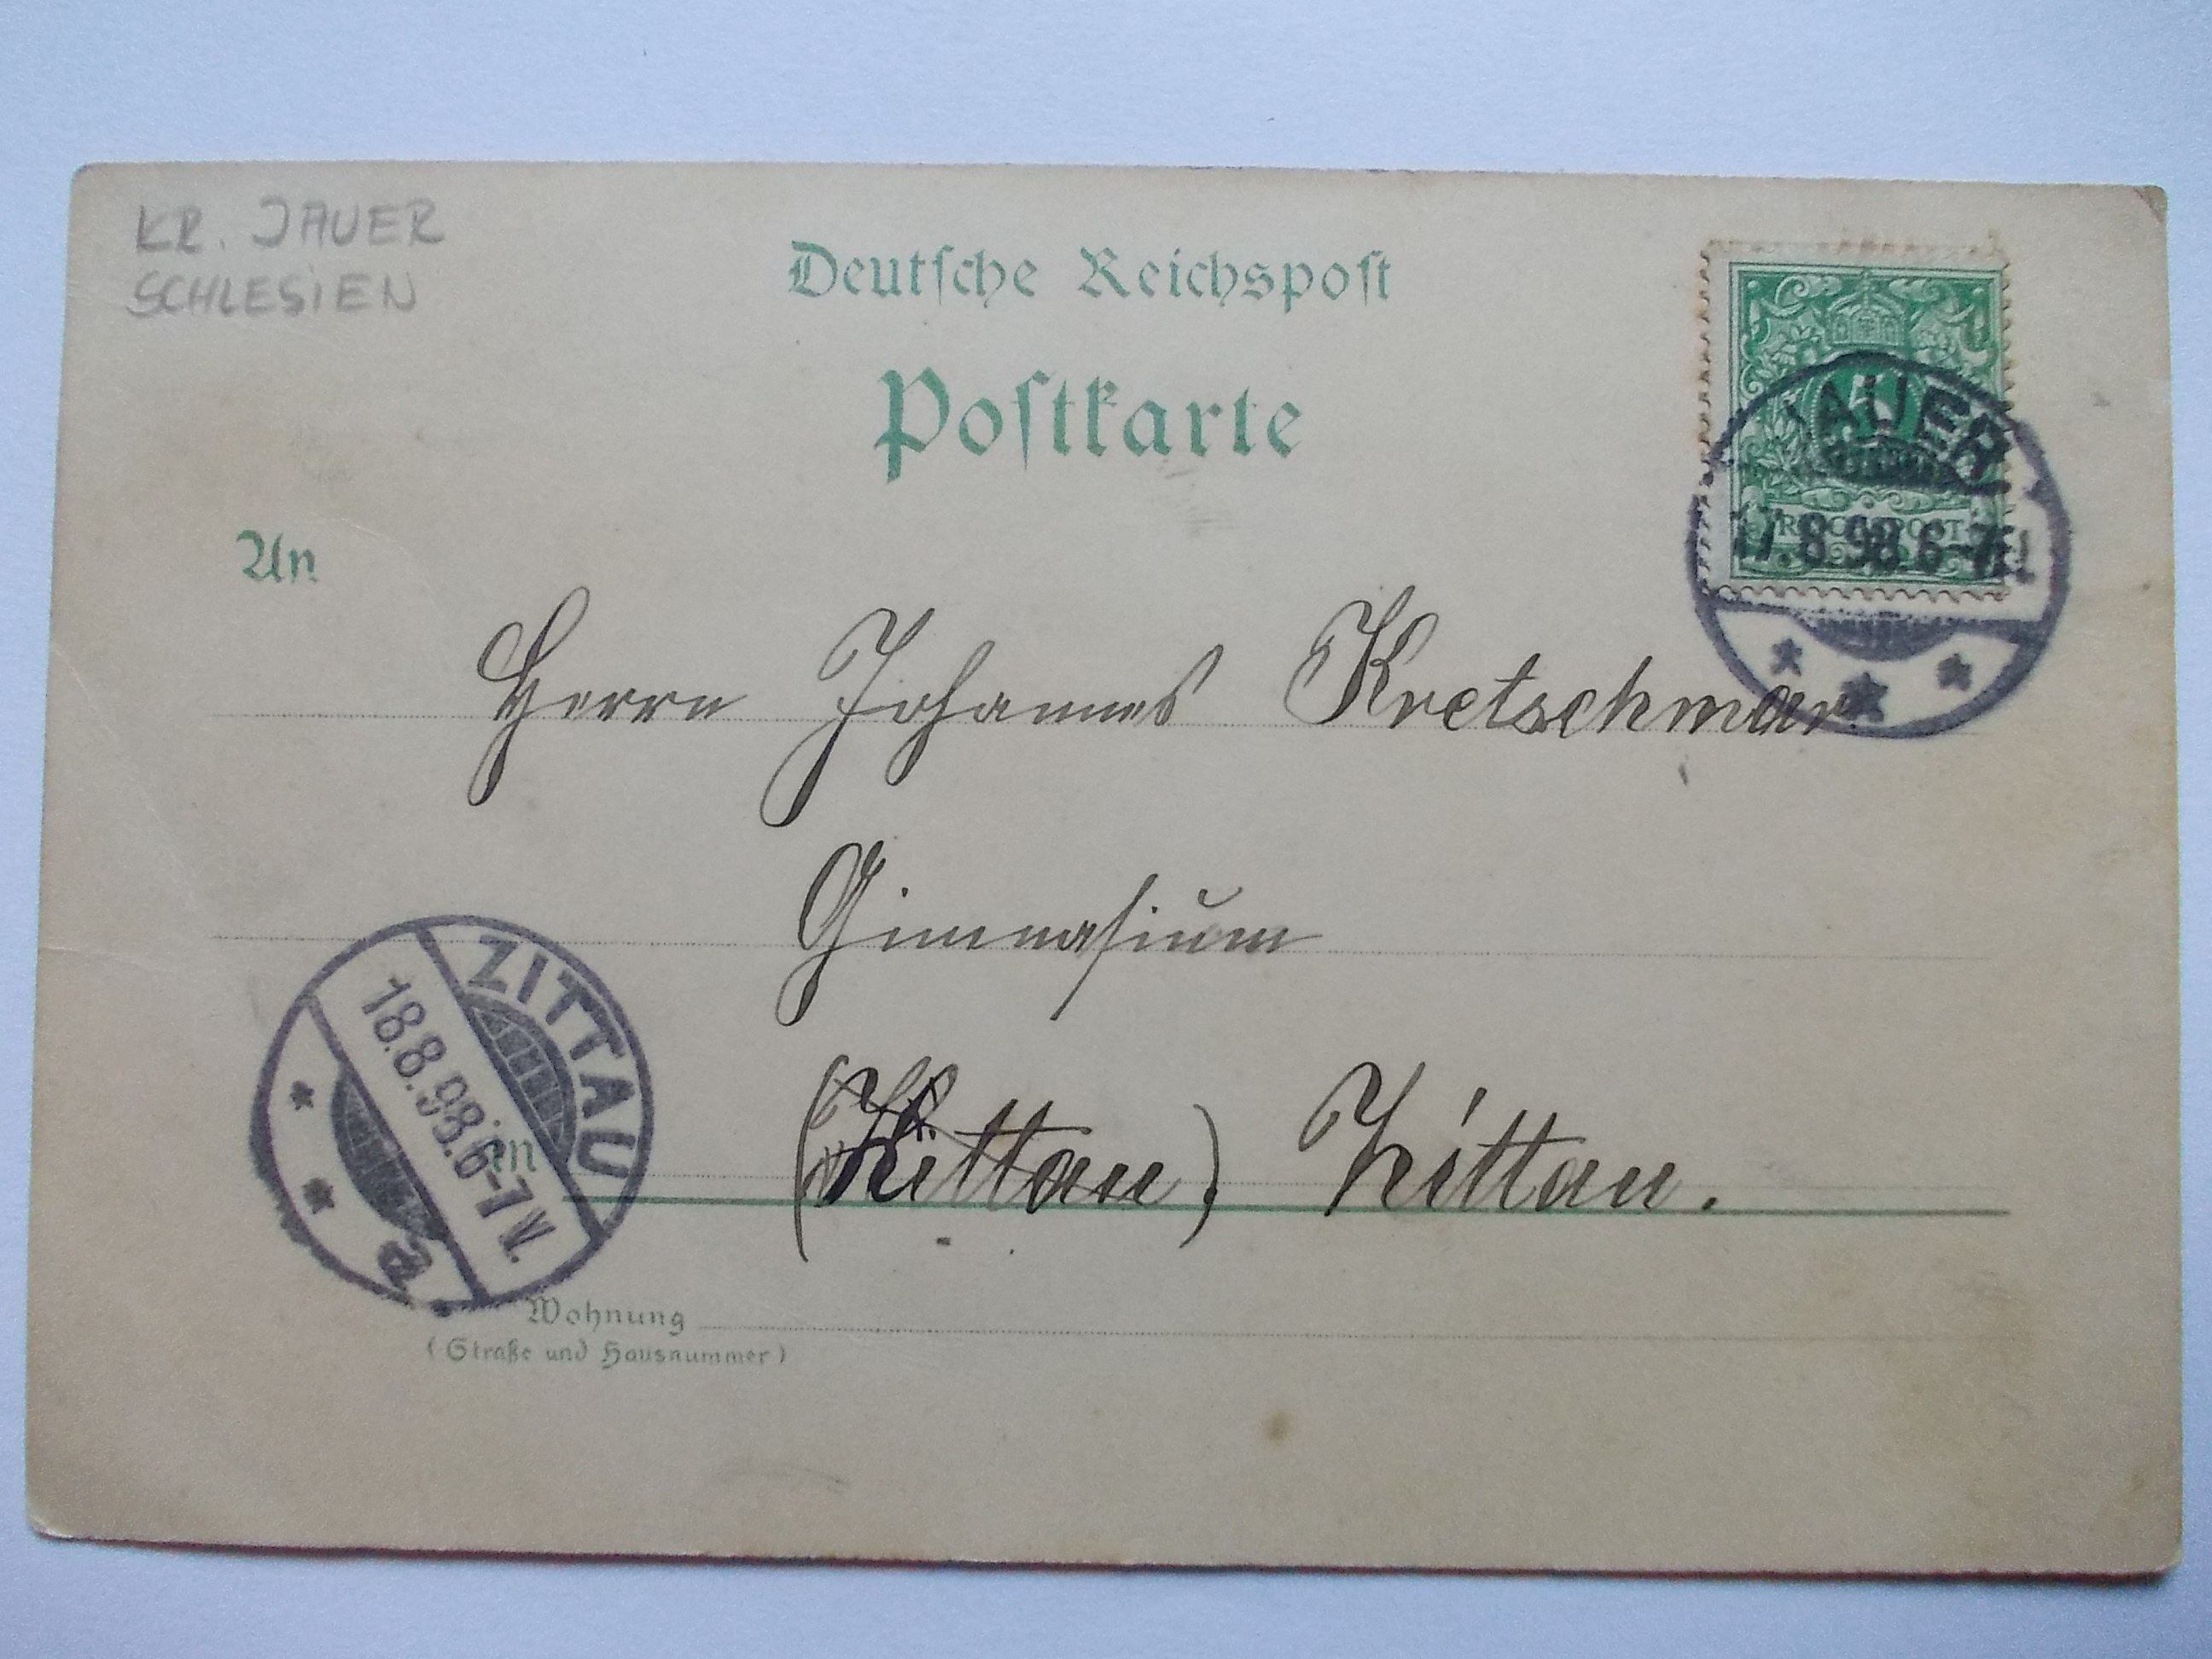 KR. JAUER
SCHLESIEN
Deutsche Reichspost
Postkarte
JAUER
17.8.98.6-7
An
Herrn Johannes Kretschmar.
Gimnasium
ZITTAU
18.8.98.6-7 V.
in
(Zittau) Zittau.
Wohnung
(Straße und Hausnummer)